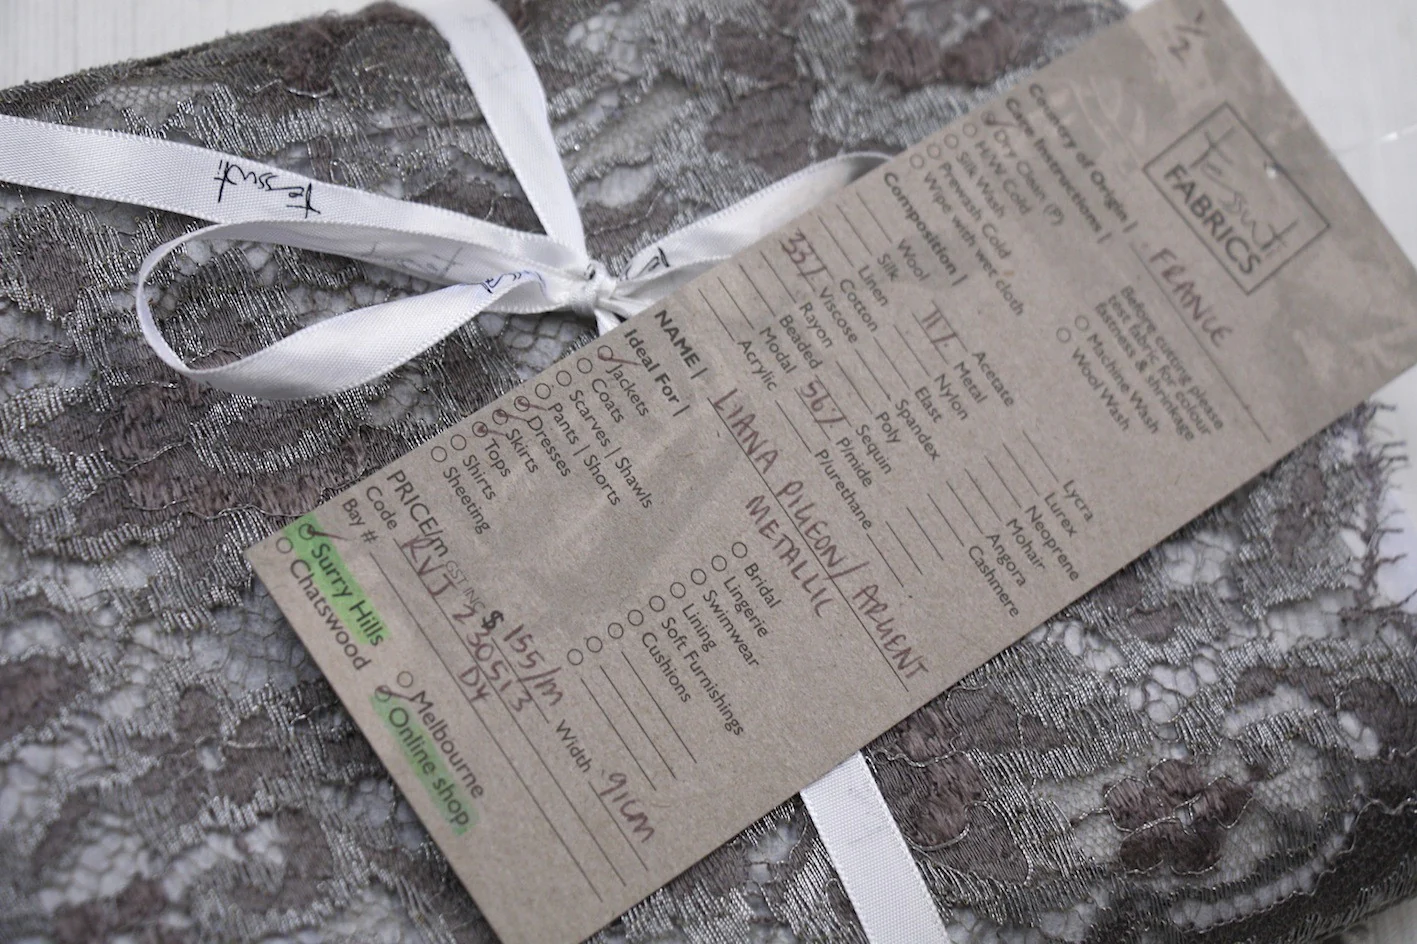 1/2
Tessuti
FABRICS
Country of Origin | FRANCE
Care Instructions |
Dry Clean (P)
H/W Cold
Silk Wash
Prewash Cold
Wipe with wet cloth
Before cutting please
test fabric for colour
fastness & shrinkage
Machine Wash
Wool Wash
Composition |
Wool
Silk
Linen
Cotton
33% Viscose
Rayon
Beaded
Modal
Acrylic
Acetate
11% Metal
Nylon
Elast
Spandex
Poly
Sequin
56% P/mide
P/urethane
Lycra
Lurex
Neoprene
Mohair
Angora
Cashmere
NAME | LIANA PIGEON/ARGENT
METALLIC
Ideal For |
Jackets
Coats
Scarves | Shawls
Pants | Shorts
Dresses
Skirts
Tops
Shirts
Sheeting
Bridal
Lingerie
Swimwear
Lining
Soft Furnishings
Cushions
PRICE/m GST INC $ 155/m Width 91cm
Code RVJ 230513
Bay # D4
Surry Hills
Chatswood
Melbourne
Online shop
Tessuti